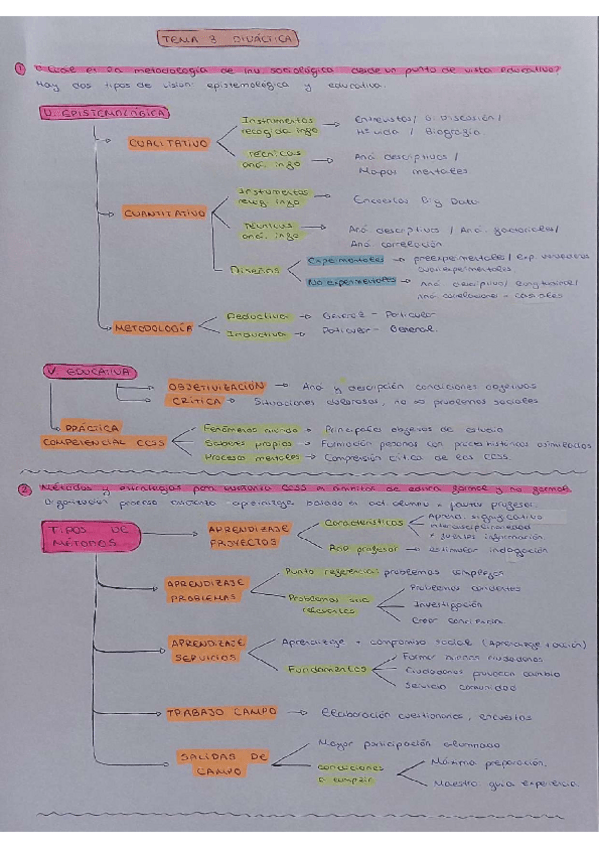 TEMA 3 DIDÁCTICA
① ¿Cuál es la metodología de inv. sociológica desde un punto de vista educativo?
Hay dos tipos de vision: epistemológica y educativa.
V. EPISTEMOLÓGICA
CUALITATIVO
Instrumentos recogida info → Entrevistas / G. Discusión / Hª vida / Biografía.
Técnicas aná. info → Aná descriptivos / Mapas mentales
CUANTITATIVO
Instrumentos recog. info → Encuestas Big Data
Técnicas aná. info → Aná descriptivos / Aná. factoriales / Aná correlación
Diseños
Experimentales → preexperimentales / Exp verdaderos cuasiexperimentales
No experimentales → Aná descriptivo / longitudinal / Aná correlacional - causales
METODOLOGÍA
Deductiva → General - Paticular
Inductiva → Paticular - General.
V. EDUCATIVA
OBJETIVIZACIÓN → Aná y descripción condiciones objetivas
CRÍTICA → Situaciones dolorosas, no so problemas sociales
PRÁCTICA COMPETENCIAL CCSS
Fenómenos → Principales objetivos de estudio
Saberes propios → Formación personas con
Procesos mentales → Comprensión crítica de las CCSS.
② Métodos y estrategias para CCSS en ámbitos de educa formal y no formal
Organización proceso enseñanza - aprendizaje basado en act. alumno + favorec profesor.
TIPOS DE MÉTODOS
APRENDIZAJE PROYECTOS
Características
Aprend. significativo
interdisciplinariedad
+ fuentes información
Ana profesor → estimular indagación
APRENDIZAJE PROBLEMAS
Punto referencia: problemas complejos
Problemas soc relevantes
Problemas candentes
Investigación
Crear conciencia.
APRENDIZAJE SERVICIOS
Aprendizaje + compromiso social (Aprendizaje + acción)
Fundamentos
Formar ciudadanos
Ciudadanos provocan cambio
Servicio comunidad
TRABAJO CAMPO → Elaboración cuestionarios, encuestas
SALIDAS DE CAMPO
Mayor participación alumnado
Condiciones a cumplir
Máxima preparación.
Maestro guía experiencia.